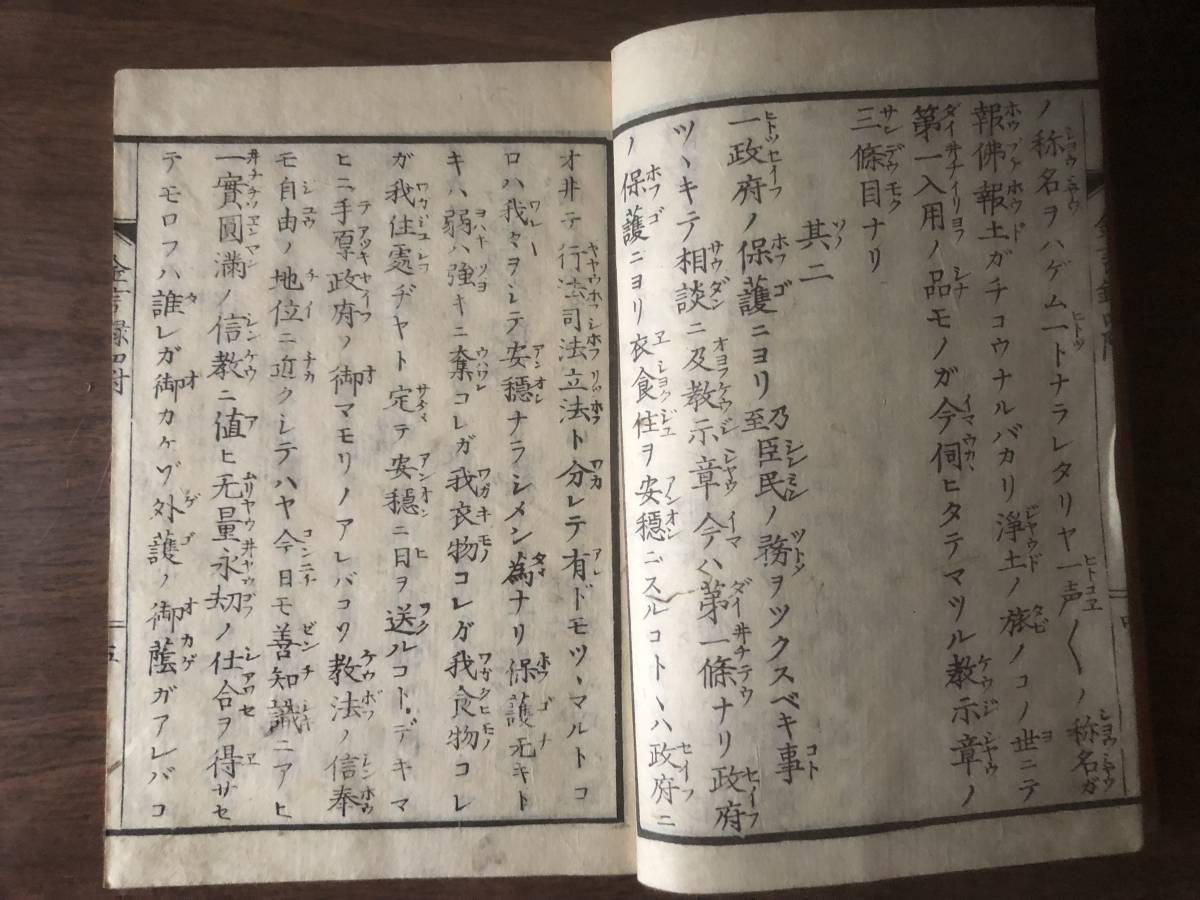 ノ称名ヲハゲム一トナラレタリヤ一声〱ノ称名ガ
報佛報土ガチコウナルバカリ浄土ノ旅ノコノ世ニテ
第一入用ノ品モノガ今伺ヒタテマツル教示章ノ
三條目ナリ
其二
一政府ノ保護ニヨリ乃至臣民ノ務ヲツクスベキ事
ツヽキテ相談ニ及教示章今ハ第一條ナリ政府
ノ保護ニヨリ衣食住ヲ安穏ニスルコトヽハ政府ニ
オ井テ行法司法立法ト分レテ有ドモツヽマルトコ
ロハ我々ヲシテ安穏ナラシメン為ナリ保護无キト
キハ弱ハ強キニ奪コレガ我衣物コレガ我食物コレ
ガ我住處ヂヤト定テ安穏ニ日ヲ送ルコトヽデキマ
ヒニ手厚政府ノ御マモリノアレバコソ教法ノ信奉
モ自由ノ地位ニ近クシテハヤ今日モ善知識ニアヒ
一實圓満ノ信教ニ値ヒ无量永劫ノ仕合ヲ得サセ
テモロフハ誰レガ御カケゾ外護ノ御蔭ガアレバコ